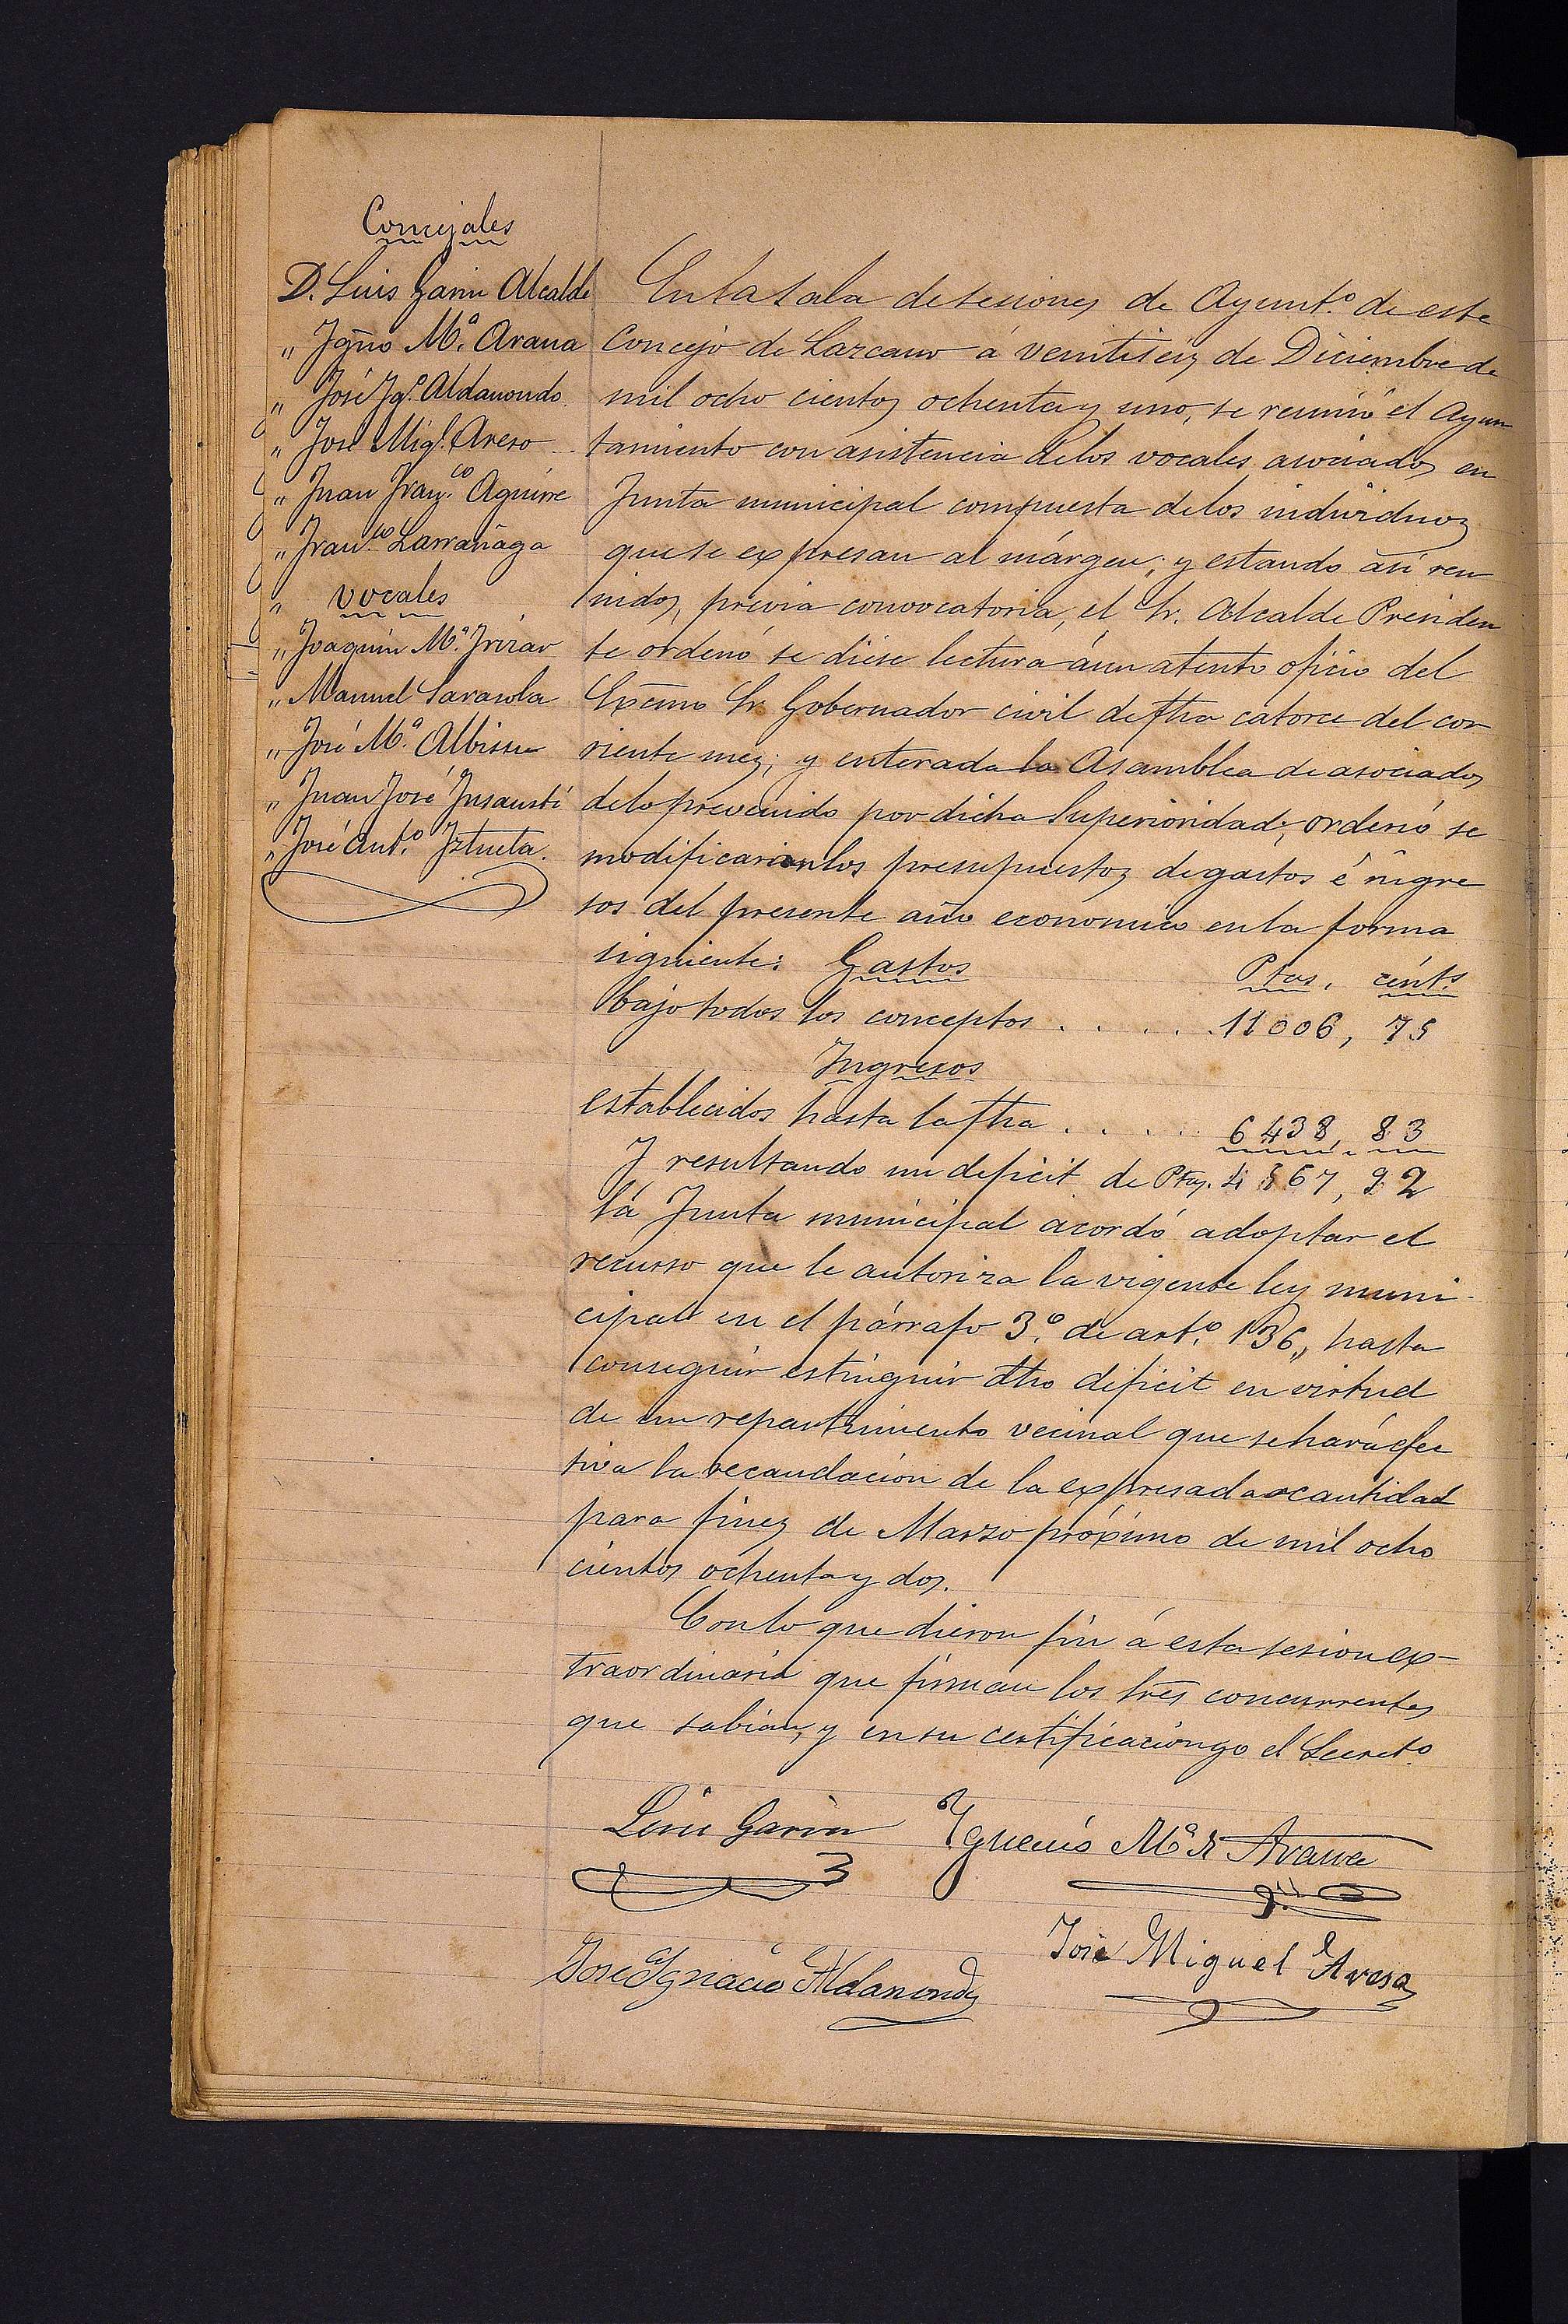 Concejales
D. Luis Garin Alcalde
„ Ygño M.ª Arana
„ José Yg.º Aldanondo
„ José Mig.l Areso
„ Juan Fran.co Aguirre
„ Fran.co Larrañaga
„ vocales
„ Joaquin M.ª Yrizar
„ Manuel Sarasola
„ José M.ª Albisu
„ Juan José Ynsausti
„ José Ant.º Yztueta.
En la sala de sesiones de Ayunt.º de este
Concejo de Lazcano á veintiseis de Diciembre de
mil ocho cientos ochenta y uno, se reunió el Ayun
tamiento con asistencia de los vocales asociados en
Junta municipal compuesta de los individuos
que se expresan al márgen; y estando así reu
nidos, prévia convocatoria, el Sr. Alcalde Presiden
te ordenó se diese lectura á un atento oficio del
Excmo Sr. Gobernador civil de fha catorce del cor
riente mes; y enterada la Asamblea de asociados
de lo prevenido por dicha Superioridad; ordenó se
modificarian los presupuestos de gastos é ingre
sos del presente año economico en la forma
siguiente: Gastos Ptas. cént.s
bajo todos los conceptos . . . . . 11006, 75
Yngresos
establecidos hasta la fha . . . . . 6438, 83
Y resultando un deficit de Ptas. 4567, 92
la Junta municipal acordó adoptar el
recurso que le autoriza la vigente ley muni-
cipal en el párrafo 3.º de art.º 136„ hasta
conseguir estinguir dho deficit en virtud
de un repartimiento vecinal que se hará efec
tiva la recaudación de la expresada cantidad
para fines de Marzo próximo de mil ocho
cientos ochenta y dos.
Con lo que dieron fin á esta sesion ex-
traordinaria que firman los Sres concurrentes
que sabian, y en su certificación yo el Secret.º
Luis Garin Ygnacio M.ª de Arana
José Ygnacio Aldanondo José Miguel Areso